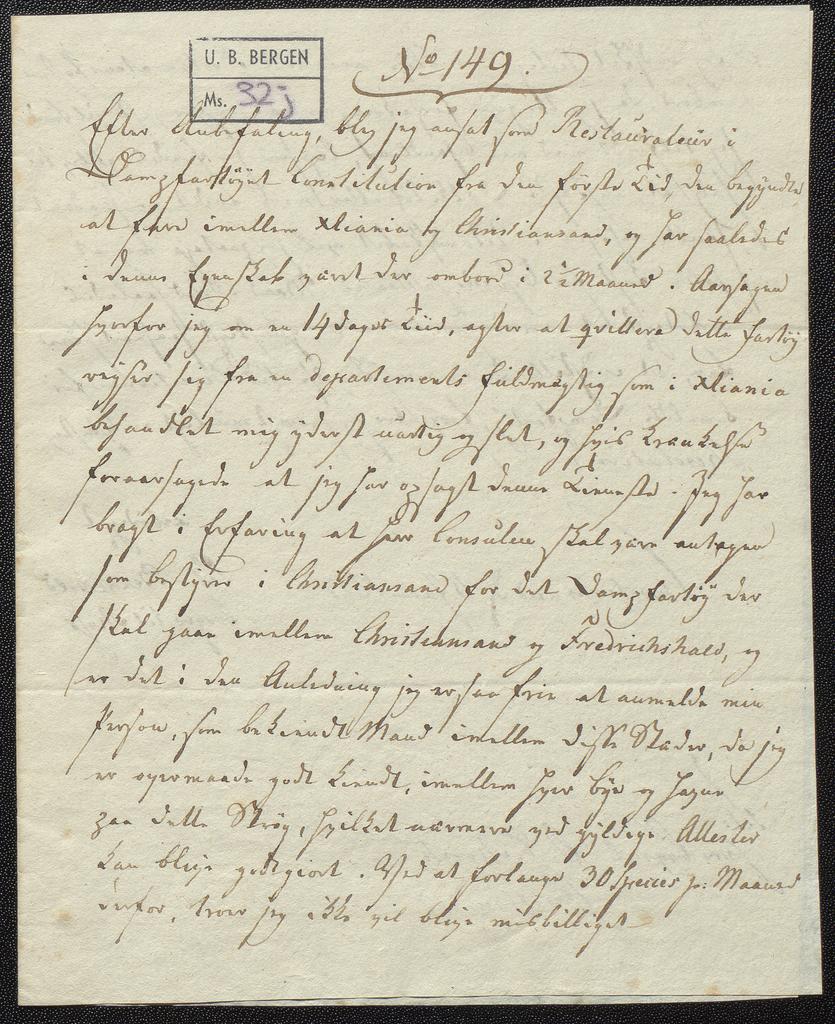 U. B. BERGEN
Ms. 32j
No 149.
Efter Anbefaling, blev jeg ansat som Restaurateur i
Dampfartöyet Constitution fra den förste Tid, den begyndte
at fare imellem Xtiania og Christiansand, og har saaledes
i denne Egenskab været der ombord i 2½ Maaned. Aarsagen
hvorfor jeg om en 14 dages Tiid, agter at qvittere dette Fartöy
reyser sig fra en departements fuldmægtig som i Xtiania
behandlet mig yderst uartig og slet, og hvis Krænkelse
foraarsagede at jeg har opsagt denne Tieneste. Jeg har
bragt i Erfaring at Herr Consulen skal være antagen
som bestyrer i Christiansand for det Dampfartöy der
skal gaae imellem Christiansand og Fredrichshald, og
er det i den Anledning jeg er saa frie at anmelde min
Person, som bekiendt Mand imellem disse Stæder, da jeg
er overmaade godt kiendt, imellem hver bÿe og havne
paa dette Strög, hvilket nærmere ved gyldige Attester
kan blive godtgiort. Ved at forlange 30 Species pr: Maaned
derfor, troer jeg ikke vil blive misbilliget